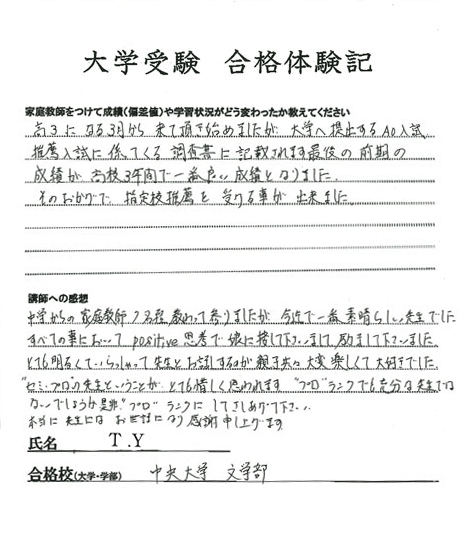 大学受験 合格体験記
家庭教師をつけて成績(偏差値)や学習状況がどう変わったか教えてください
高3になる3月から来て頂き始めましたが、大学へ提出するAO入試
推薦入試に係てくる調査書に記載されます最後の前期の
成績が、高校3年間で一番良い成績となりました。
そのおかげで、指定校推薦を受ける事が出来ました。
講師への感想
中学からの家庭教師7名程教わって参りましたが、今迄で一番素晴らしい先生でした
すべての事において positive思考で娘に接して下さいまして、励まして下さいました。
とても明るくていらっしゃって先生とお話するのが親子共々大変楽しくて大好きでした。
"セミ・プロ"の先生ということがとても惜しく思われます "プロ"ランクでも充分な先生では
ないでしょうか是非"プロ"ランクにしてさしあげて下さい。
本当に先生には お世話になり感謝申し上げます
氏名 T.Y
合格校(大学・学部) 中央大学 文学部